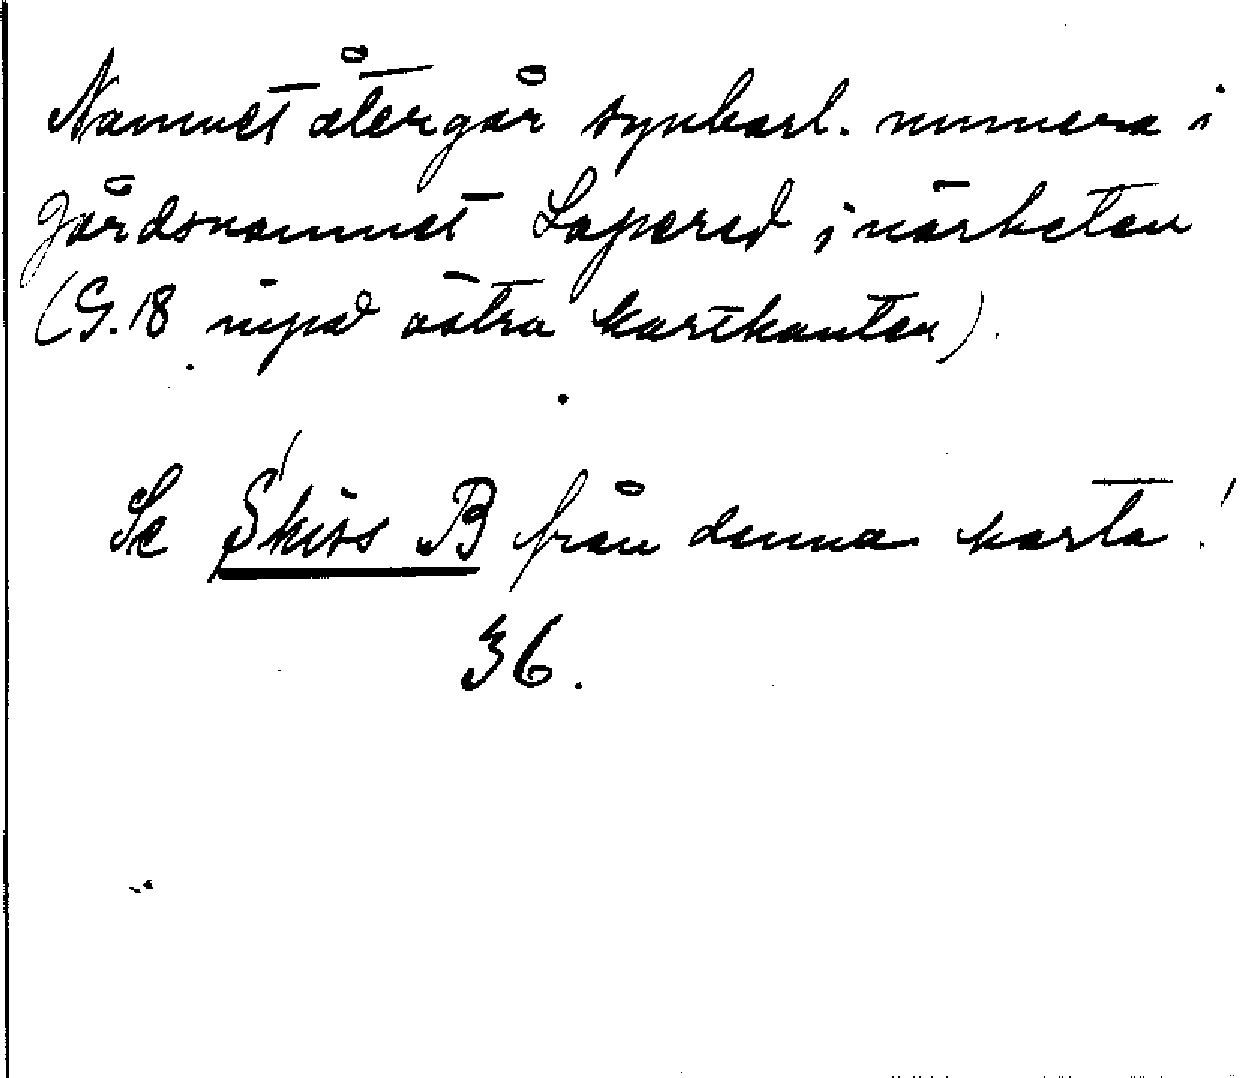 Namnet återgår synbarl. numera i
gårdsnamnet Lapered i närheten
(G. 18 nipå östra kartkanten).
Se Skiss B från denna karta!
36.